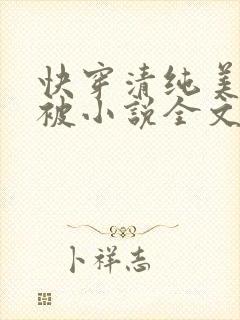 快穿清纯美
被小説全文
卜祥志